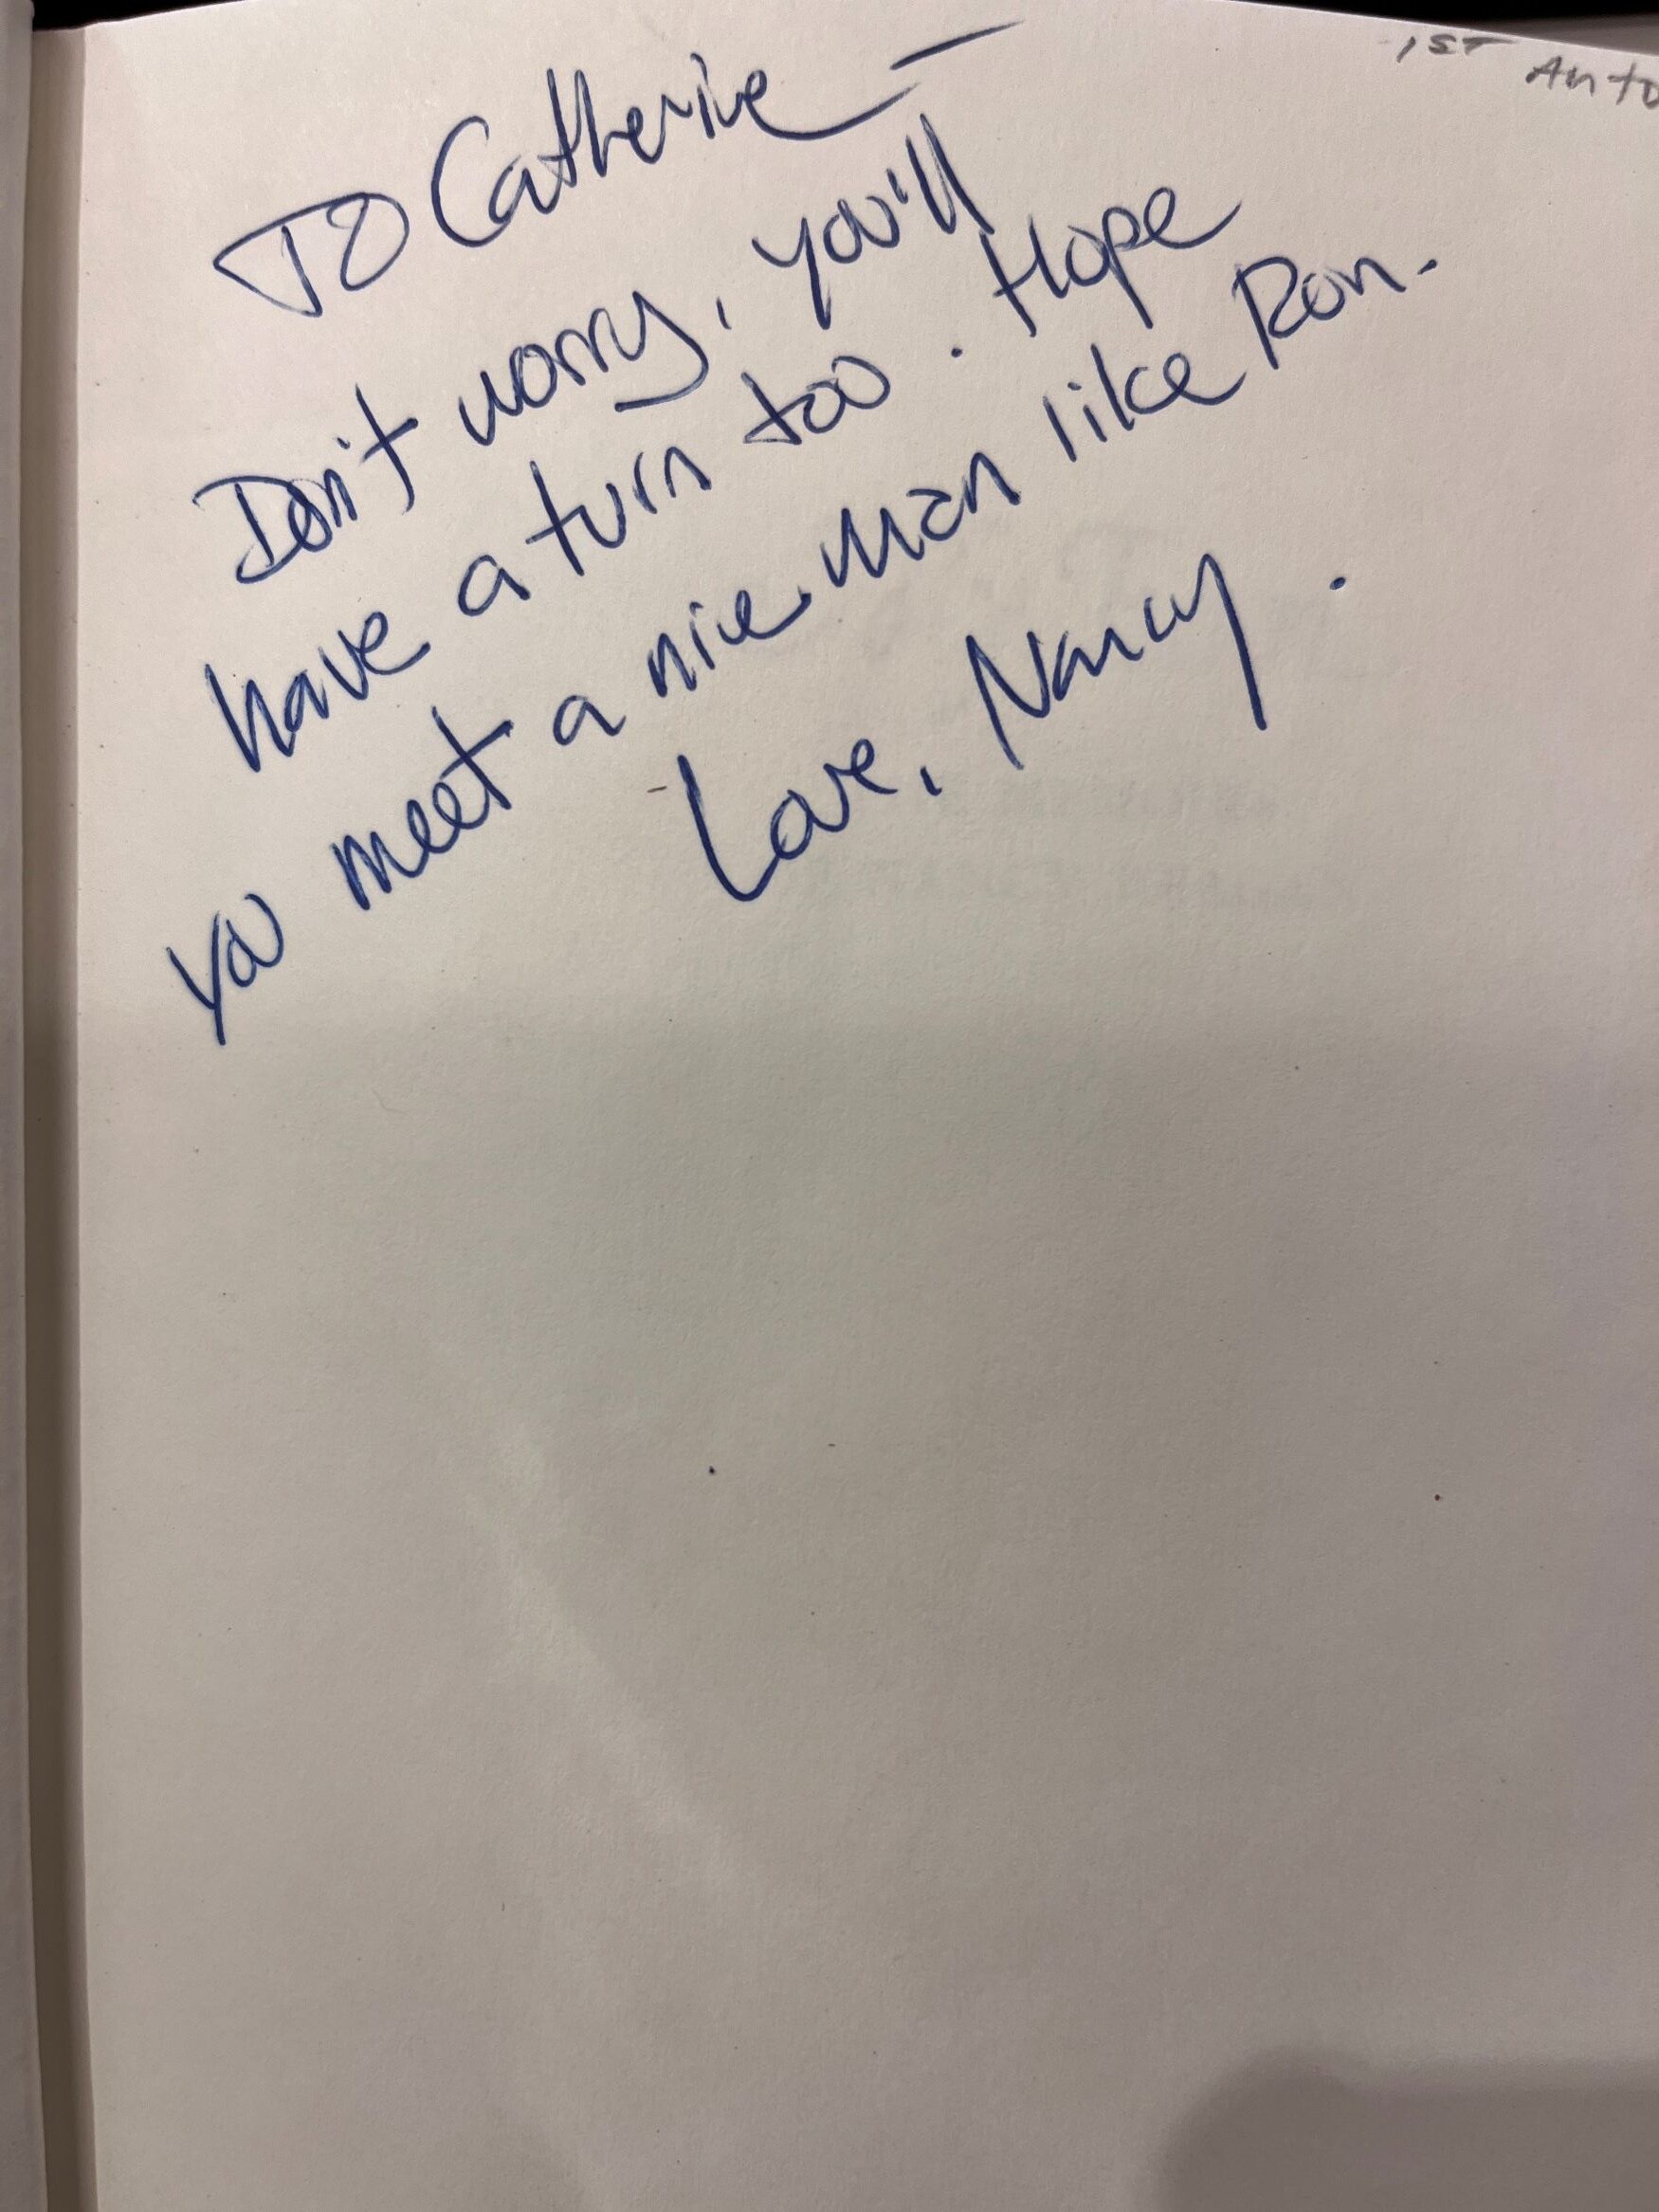 1ST
Anto
To Catherine —
Don't worry, you'll
have a turn too. Hope
you meet a nice man like Ron.
Love, Nancy.